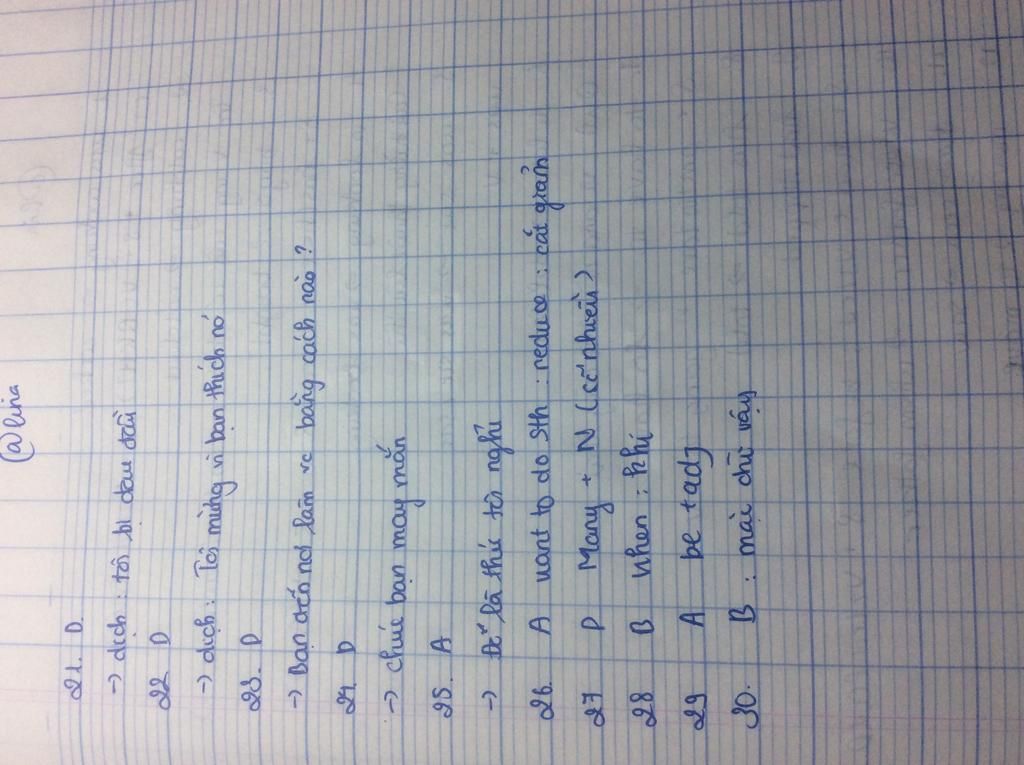 @lina
21. D
-> dịch : tôi bị đau đầu
22 D
-> dịch : Tôi mừng vì bạn thích nó
23. D
-> Bạn đến nơi làm vc bằng cách nào ?
24. D
-> chúc bạn may mắn
25. A
-> đó là thứ tôi nghĩ
26. A want to do sth : reduce : cắt giảm
27 D Many + N (số nhiều)
28 B When : khi
29 A be + adj
30. B : mặc dù vậy